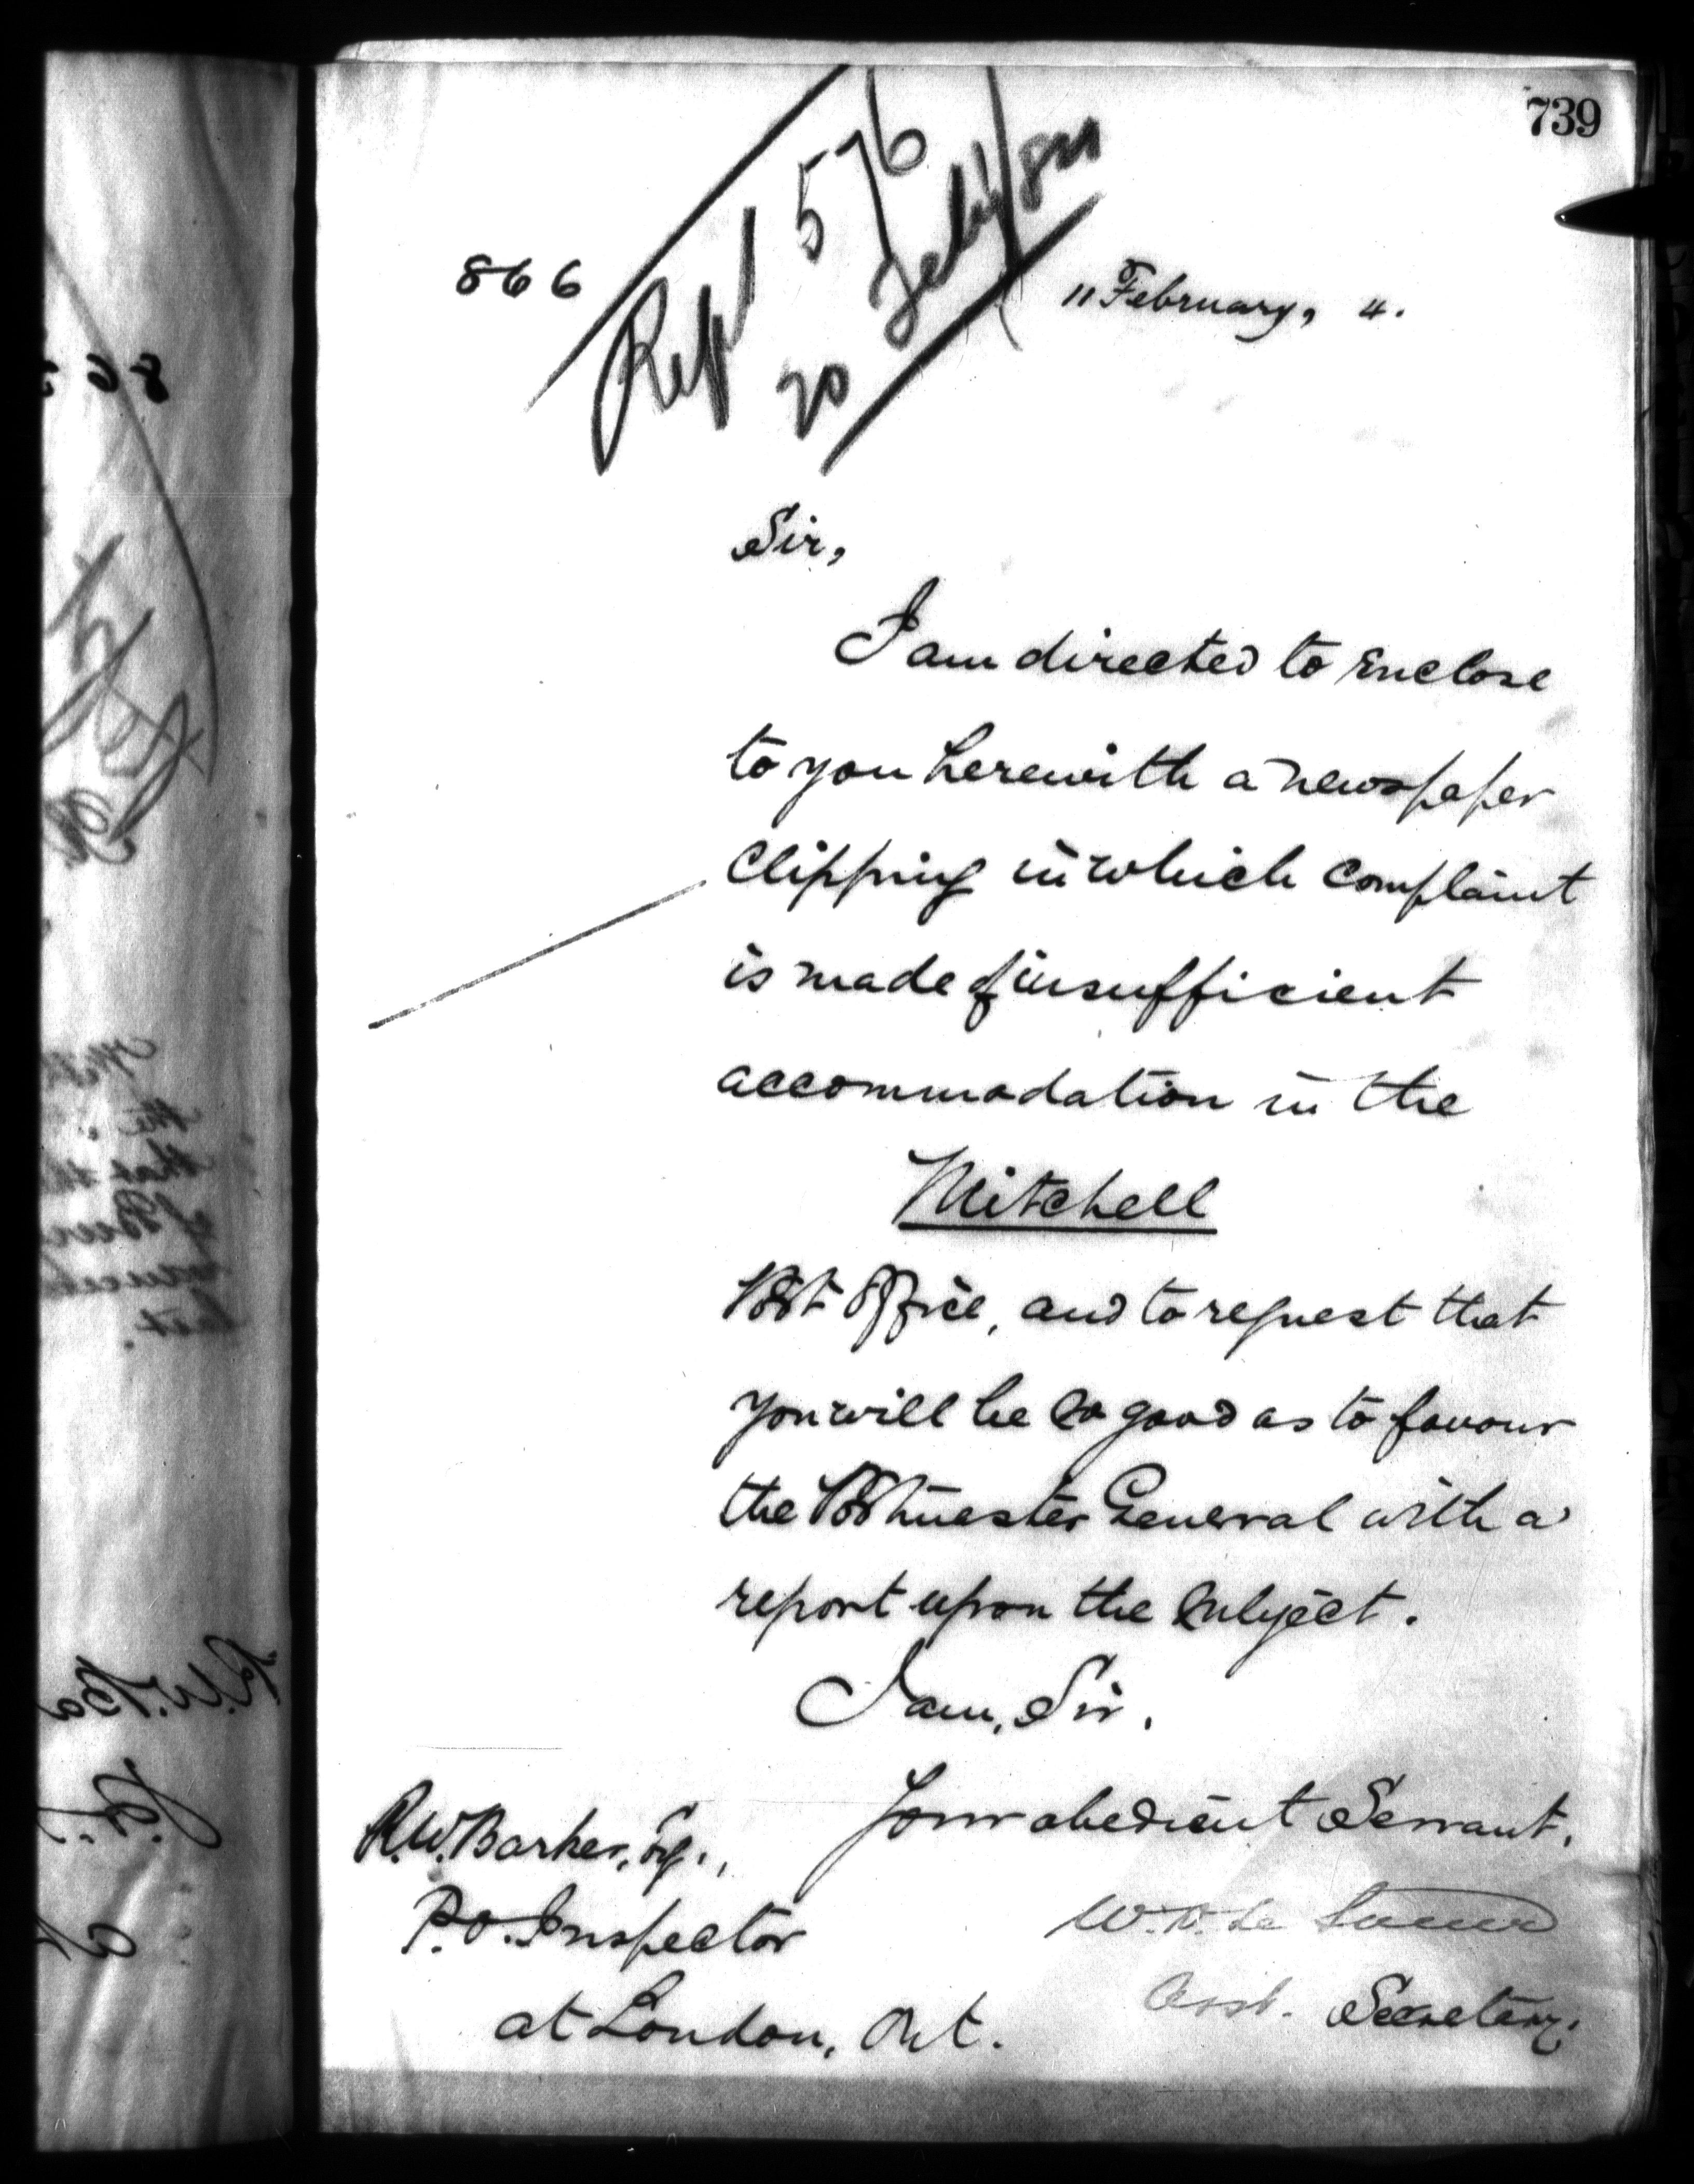 739
Rep'd 576
20 Feby/84
866
11 February, 4.
Sir,
I am directed to enclose
to you herewith a newspaper
clipping in which complaint
is made of insufficient
accommodation in the
Mitchell
Post Office, and to request that
you will be so good as to favour
the Postmaster General with a
report upon the subject.
I am, Sir,
Your obedient Servant,
R.W. Barker, Esq.,
P.O. Inspector
at London, Ont.
W. D. Le Sueur
Asst. Secretary.